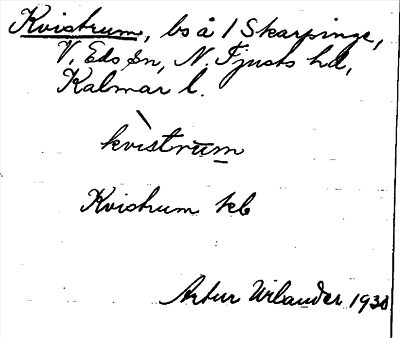 Kvistrum, bs å 1 Skarpinge,
V. Eds sn, N. Tjusts hd,
Kalmar l.
kvìstrum
Kvistrum kb
Artur Wilander 1930